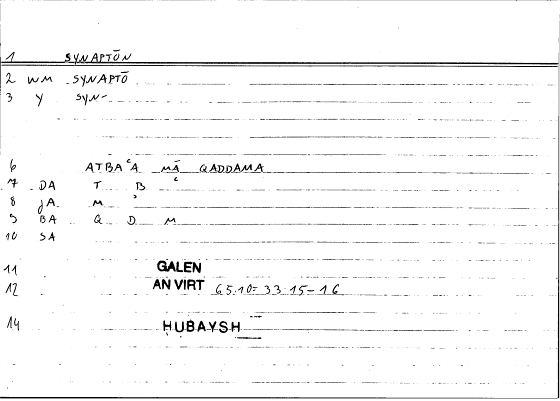 1 SYNAPTŌN
2 WM SYNAPTŌ
3 Y SYN-
6 ATBAʿA MĀ QADDAMA
7 DA T B ʿ
8 JA M ʾ
9 BA Q D M
10 SA
11 GALEN
12 AN VIRT 65.10=33.15-16
14 HUBAYSH